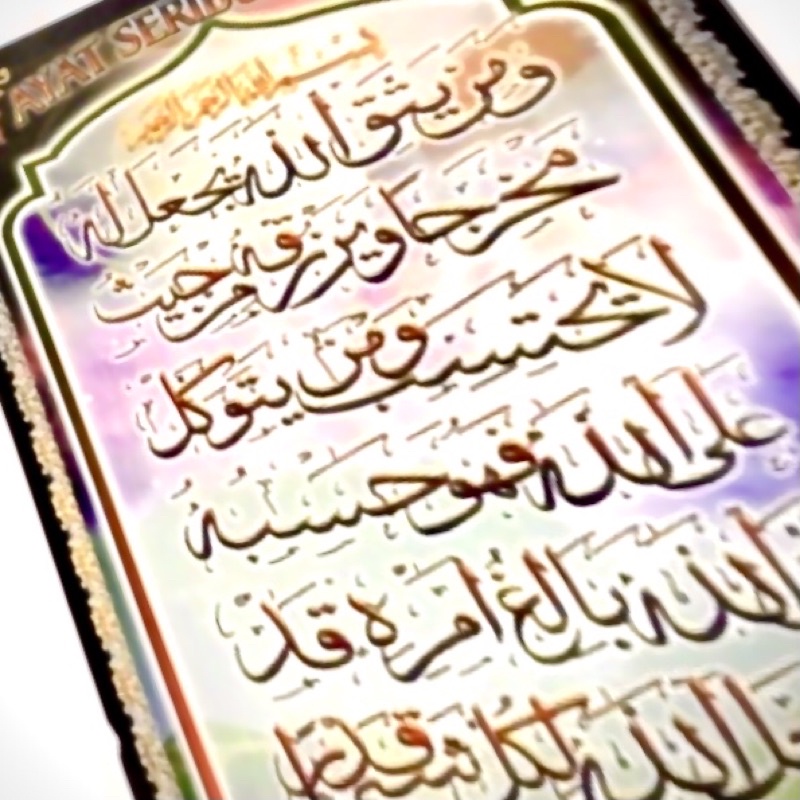 AYAT SERIBU
بسم الله الرحمن الرحيم
ومن يتق الله يجعل له
مخرجا ويرزقه من حيث
لا يحتسب ومن يتوكل
على الله فهو حسبه
الله بالغ أمره قد
الله لكل شيء قدرا